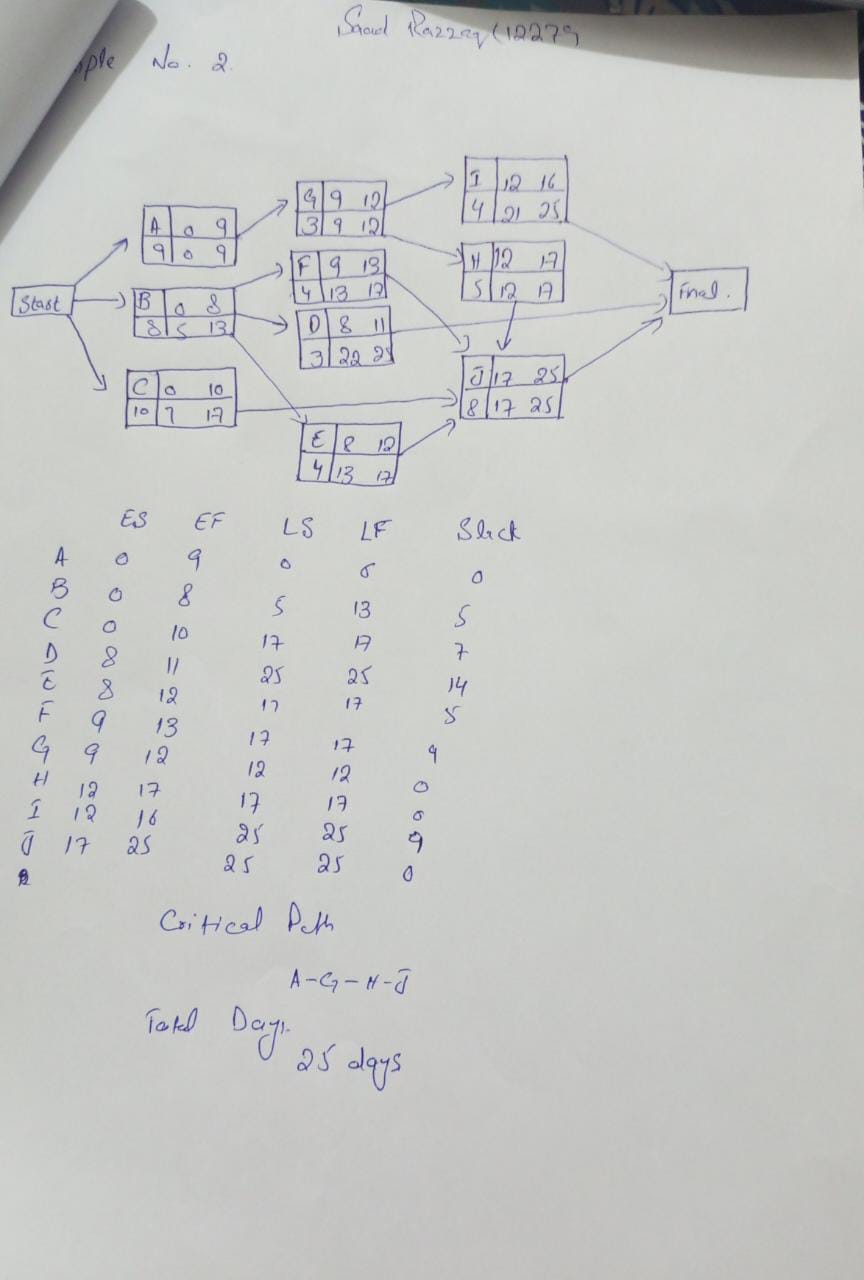 Saad Razzaq (12279
ple No. 2.
Start
A 0 9
9 0 9
B 0 8
8 5 13
C 0 10
10 7 17
G 9 12
3 9 12
F 9 13
4 13 17
D 8 11
3 22 25
E 8 12
4 13 17
I 12 16
4 21 25
H 12 17
5 12 17
J 17 25
8 17 25
Final.
ES EF LS LF Slack
A 0 9 0 0 0
B 0 8 5 13 5
C 0 10 17 17 7
D 8 11 25 25 14
E 8 12 17 17 5
F 9 13 17 17 9
G 9 12 12 12 0
H 12 17 17 17 0
I 12 16 25 25 9
J 17 25 25 25 0
Critical Path
A-G-H-J
Total Days.
25 days